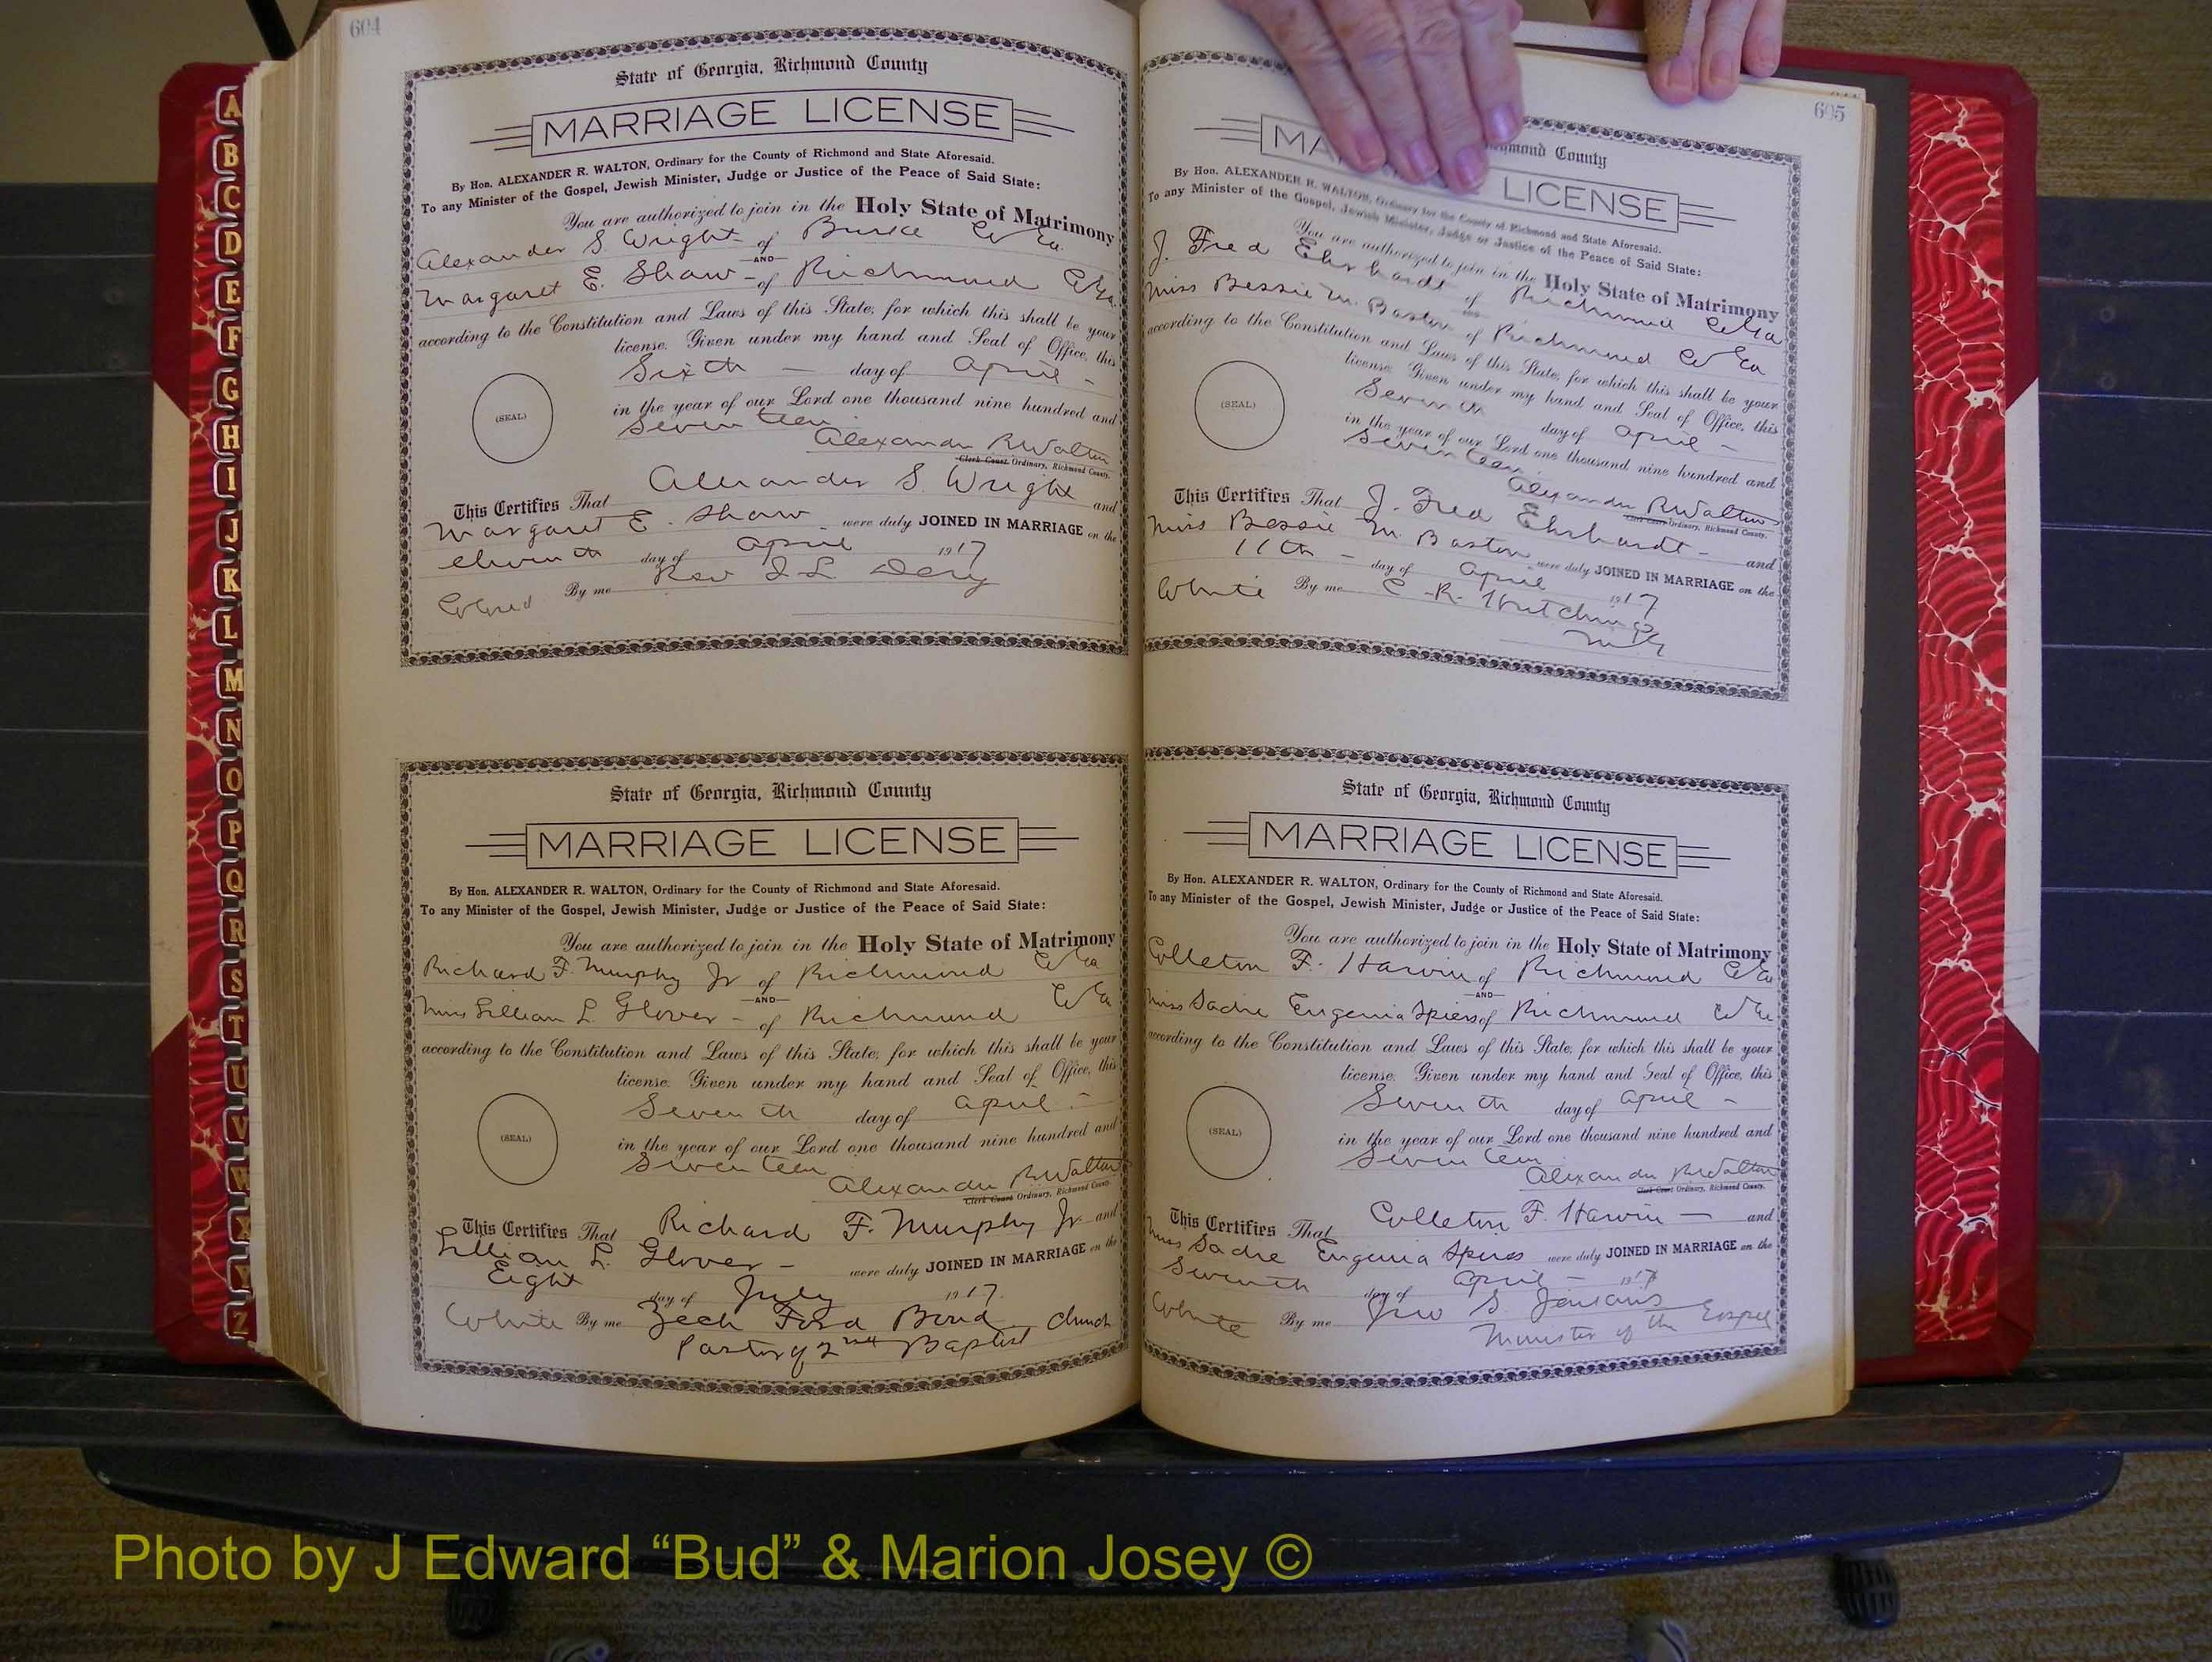 604
State of Georgia, Richmond County
MARRIAGE LICENSE
By Hon. ALEXANDER R. WALTON, Ordinary for the County of Richmond and State Aforesaid.
To any Minister of the Gospel, Jewish Minister, Judge or Justice of the Peace of Said State:
You are authorized to join in the Holy State of Matrimony
Alexander S Wright - of Burke Co Ga.
AND
Margaret E. Shaw - of Richmond Co Ga.
according to the Constitution and Laws of this State, for which this shall be your
license. Given under my hand and Seal of Office, this
Sixth - day of April -
(SEAL)
in the year of our Lord one thousand nine hundred and
Seventeen
Alexander R Walton
Clerk Court Ordinary, Richmond County.
This Certifies That Alexander S. Wright and
Margaret E. Shaw were duly JOINED IN MARRIAGE on the
eleventh day of April 1917
Colored By me Rev J L
State of Georgia, Richmond County
MARRIAGE LICENSE
By Hon. ALEXANDER R. WALTON, Ordinary for the County of Richmond and State Aforesaid.
To any Minister of the Gospel, Jewish Minister, Judge or Justice of the Peace of Said State:
You are authorized to join in the Holy State of Matrimony
Richard F. Murphy Jr of Richmond Co Ga
AND
Miss Lillian L. Glover - of Richmond Co Ga
according to the Constitution and Laws of this State, for which this shall be your
license. Given under my hand and Seal of Office, this
Seventh day of April -
(SEAL)
in the year of our Lord one thousand nine hundred and
Seventeen
Alexander R Walton
Clerk Court Ordinary, Richmond County.
This Certifies That Richard F. Murphy Jr and
Lillian L. Glover - were duly JOINED IN MARRIAGE on the
Eight day of July 1917.
White By me Zech Ford Bond church
Pastor of 2nd Baptist
605
Richmond County
MA LICENSE
By Hon. ALEXANDER R. WALTON, Ordinary for the County of Richmond and State Aforesaid.
To any Minister of the Gospel, Jewish Minister, Judge or Justice of the Peace of Said State:
You are authorized to join in the Holy State of Matrimony
J. Fred Ehrhardt of Richmond Co Ga
AND
Miss Bessie M. Baston of Richmond Co Ga
according to the Constitution and Laws of this State, for which this shall be your
license. Given under my hand and Seal of Office, this
Seventh day of April -
(SEAL)
in the year of our Lord one thousand nine hundred and
Seventeen
Alexander R Walton
Clerk Court Ordinary, Richmond County.
This Certifies That J. Fred Ehrhardt - and
Miss Bessie M. Baston were duly JOINED IN MARRIAGE on the
11th - day of April 1917
White By me C. R. Hutchings
State of Georgia, Richmond County
MARRIAGE LICENSE
By Hon. ALEXANDER R. WALTON, Ordinary for the County of Richmond and State Aforesaid.
To any Minister of the Gospel, Jewish Minister, Judge or Justice of the Peace of Said State:
You are authorized to join in the Holy State of Matrimony
Colleton F. Harvin of Richmond Co Ga
AND
Miss Sadie Eugenia Spiers of Richmond Co Ga
according to the Constitution and Laws of this State, for which this shall be your
license. Given under my hand and Seal of Office, this
Seventh day of April -
(SEAL)
in the year of our Lord one thousand nine hundred and
Seventeen
Alexander R Walton
Clerk Court Ordinary, Richmond County.
This Certifies That Colleton F. Harvin - and
Miss Sadie Eugenia Spires were duly JOINED IN MARRIAGE on the
Seventh day of April - 1917
White By me Jno S. Jenkins
Minister of the Gospel
A
B
C
D
E
F
G
H
I
J
K
L
M
N
O
P
Q
R
S
T
U
V
W
X
Y
Z
Photo by J Edward “Bud” & Marion Josey ©